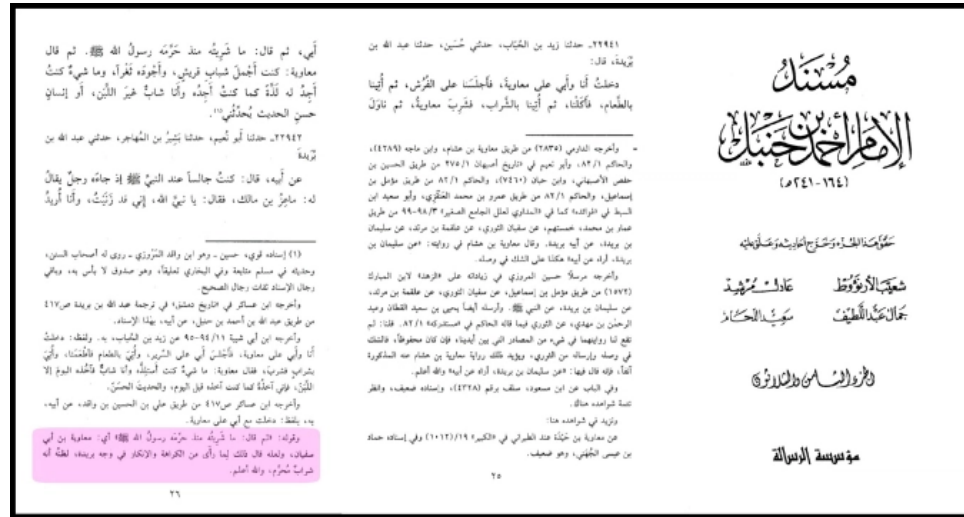 مُسْنَدُ
الإمَامِ أَحْمَدَ بْنِ حَنْبَلٍ
(١٦٤-٢٤١ه)
حَقَّقَ هَذَا الجُزْء وَخَرَّجَ أحَاديثه وَعَلَّقَ عَلَيْه
شعيب الأرنؤوط عادل مرشد
جمال عبد اللطيف سعيد اللحام
الجزء الثامن والثلاثون
مؤسسة الرسالة
٢٢٩٤١ـ حدثنا زيد بن الحُبَاب، حدثني حُسَين، حدثنا عبد الله بن
بُرَيدةَ، قال:
دخلتُ أنا وأَبي على معاويةَ، فأَجلَسَنا على الفُرُش، ثم أُتِينا
بالطَّعام، فأَكَلْنا، ثم أُتِينا بالشَّراب، فشَرِبَ معاويةُ، ثم ناوَلَ
= وأخرجه الدارمي (٢٨٣٥) من طريق معاوية بن هشام، وابن ماجه (٤٢٨٩)،
والحاكم ٨٢/١، وأبو نعيم في «تاريخ أصبهان» ٢٧٥/١ من طريق الحسين بن
حفص الأصبهاني، وابن حبان (٧٤٦٠)، والحاكم ٨٢/١ من طريق مؤمل بن
إسماعيل، والحاكم ٨٢/١ من طريق عمرو بن محمد العَنْقَزي، وأبو سعيد ابن
السبط في «فوائده» كما في «المداوي لعلل الجامع الصغير» ٩٨/٣-٩٩ من طريق
عمار بن محمد، خمستهم، عن سفيان الثوري، عن علقمة بن مرثد، عن سليمان
بن بريدة، عن أبيه بريدة. وقال معاوية بن هشام في روايته: «عن سليمان بن
بريدة، أراه عن أبيه» هكذا على الشك في وصله.
وأخرجه مرسلاً حسين المروزي في زياداته على «الزهد» لابن المبارك
(١٥٧٢) من طريق مؤمل بن إسماعيل، عن سفيان الثوري، عن علقمة بن مرثد،
عن سليمان بن بريدة، عن النبي ﷺ. وأرسله أيضاً يحيى بن سعيد القطان وعبد
الرحمٰن بن مهدي، عن الثوري فيما قاله الحاكم في «مستدركه» ٨٢/١. قلنا: لم
تقع لنا روايتهما في شيء من المصادر التي بين أيدينا، فإن كان محفوظاً، فالشك
في وصله وإرساله من الثوري، ويؤيد ذلك رواية معاوية بن هشام عنه المذكورة
آنفاً، فإنه قال فيها: «عن سليمان بن بريدة، أراه عن أبيه» والله أعلم.
وفي الباب عن ابن مسعود، سلف برقم (٤٣٢٨)، وإسناده ضعيف، وانظر
تتمة شواهده هناك.
ونزيد في شواهده هنا:
عن معاوية بن حَيْدَة عند الطبراني في «الكبير» ١٩/(١٠١٢) وفي إسناده حماد
بن عيسى الجُهَني، وهو ضعيف.
٢٥
أَبي، ثم قال: ما شَرِبتُه منذ حَرَّمَه رسولُ الله ﷺ. ثم قال
معاوية: كنت أَجملَ شبابِ قريشٍ، وأَجْوَدَه ثَغْراً، وما شيءٌ كنتُ
أَجِدُ له لَذَّةً كما كنتُ أَجِدُه وأَنا شابٌّ غيرَ اللَّبَنِ، أو إنسانٍ
حسنِ الحديث يُحدِّثُني(١).
٢٢٩٤٢ـ حدثنا أبو نُعيم، حدثنا بَشِيرُ بن المُهاجر، حدثني عبد الله بن
بُرَيْدةَ
عن أبيه، قال: كنتُ جالساً عند النبيِّ ﷺ إذ جاءَه رجلٌ يقالُ
له: ماعِزُ بن مالك، فقال: يا نبيَّ الله، إني قد زَنَيْتُ، وأَنا أُريدُ
(١) إسناده قوي، حسين ـ وهو ابن واقد المَرْوَزي ـ روى له أصحاب السنن،
وحديثه في مسلم متابعة وفي البخاري تعليقاً، وهو صدوق لا بأس به، وباقي
رجال الإسناد ثقات رجال الصحيح.
وأخرجه ابن عساكر في «تاريخ دمشق» في ترجمة عبد الله بن بريدة ص٤١٧
من طريق عبد الله بن أحمد بن حنبل، عن أبيه، بهذا الإسناد.
وأخرجه ابن أبي شيبة ٩٤/١١-٩٥ عن زيد بن الحُباب، به. ولفظه: دخلتُ
أنا وأبي على معاوية، فأَجْلَسَ أبي على السَّرير، وأُتِيَ بالطعام فأَطْعَمَنا، وأُتِيَ
بشرابٍ فشربَ، فقال معاوية: ما شيءٌ كنت أستلِذُّه وأنا شابٌّ فآخُذُه اليومَ إلا
اللَّبَنَ، فإني آخذُه كما كنت آخذه قبل اليوم، والحديثَ الحسَنَ.
وأخرجه ابن عساكر ص٤١٧ من طريق علي بن الحسين بن واقد، عن أبيه،
به، بلفظ: دخلت مع أبي على معاوية.
وقوله: «ثم قال: ما شَرِبتُه منذ حرَّمَه رسولُ الله ﷺ» أي: معاوية بن أبي
سفيان، ولعله قال ذلك لِما رأَى من الكراهة والإنكار في وجه بريدة، لظنِّه أنه
شرابٌ مُحرَّم، والله أعلم.
٢٦